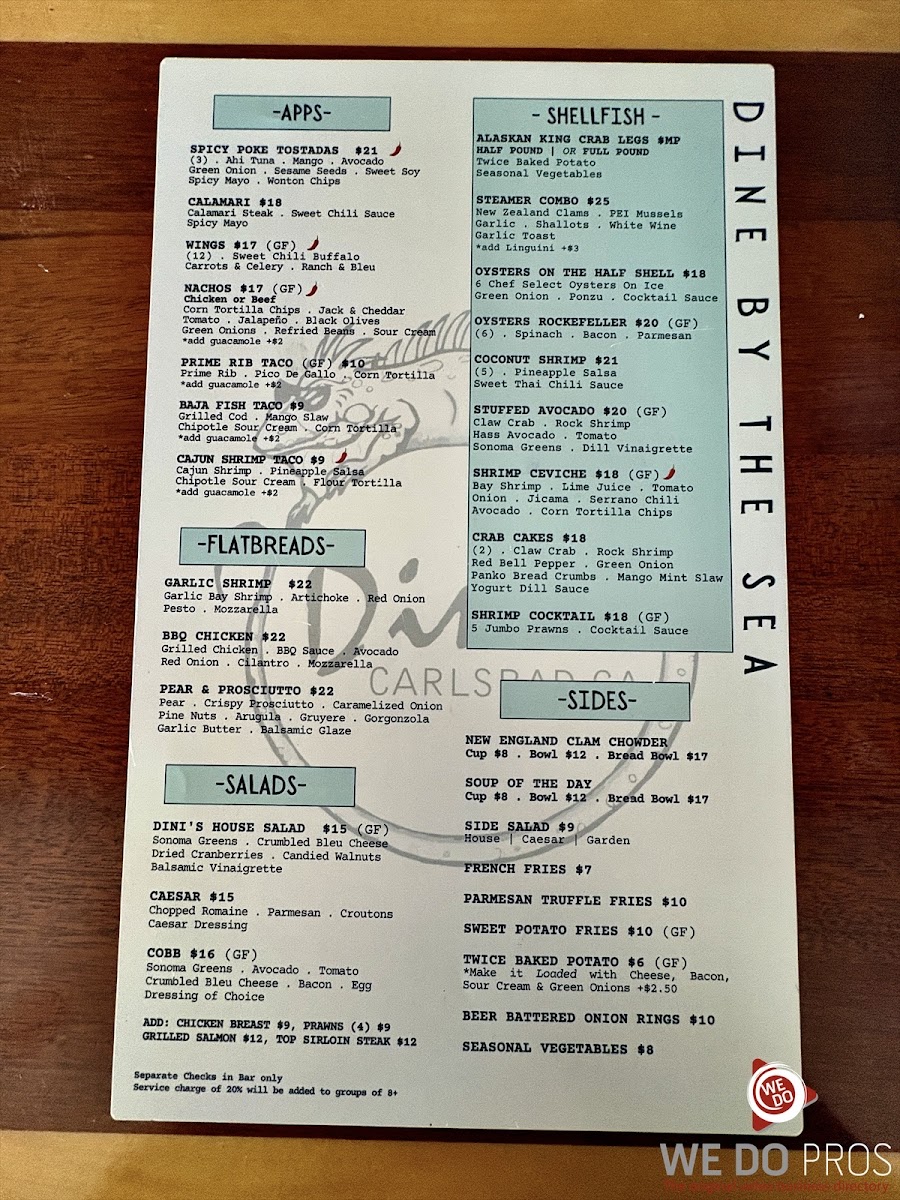 -APPS-
SPICY POKE TOSTADAS $21
(3) . Ahi Tuna . Mango . Avocado
Green Onion . Sesame Seeds . Sweet Soy
Spicy Mayo . Wonton Chips
CALAMARI $18
Calamari Steak . Sweet Chili Sauce
Spicy Mayo
WINGS $17 (GF)
(12) . Sweet Chili Buffalo
Carrots & Celery . Ranch & Bleu
NACHOS $17 (GF)
Chicken or Beef
Corn Tortilla Chips . Jack & Cheddar
Tomato . Jalapeño . Black Olives
Green Onions . Refried Beans . Sour Cream
*add guacamole +$2
PRIME RIB TACO (GF) $10
Prime Rib . Pico De Gallo . Corn Tortilla
*add guacamole +$2
BAJA FISH TACO $9
Grilled Cod . Mango Slaw
Chipotle Sour Cream . Corn Tortilla
*add guacamole +$2
CAJUN SHRIMP TACO $9
Cajun Shrimp . Pineapple Salsa
Chipotle Sour Cream . Flour Tortilla
*add guacamole +$2
-FLATBREADS-
GARLIC SHRIMP $22
Garlic Bay Shrimp . Artichoke . Red Onion
Pesto . Mozzarella
BBQ CHICKEN $22
Grilled Chicken . BBQ Sauce . Avocado
Red Onion . Cilantro . Mozzarella
PEAR & PROSCIUTTO $22
Pear . Crispy Prosciutto . Caramelized Onion
Pine Nuts . Arugula . Gruyere . Gorgonzola
Garlic Butter . Balsamic Glaze
-SALADS-
DINI'S HOUSE SALAD $15 (GF)
Sonoma Greens . Crumbled Bleu Cheese
Dried Cranberries . Candied Walnuts
Balsamic Vinaigrette
CAESAR $15
Chopped Romaine . Parmesan . Croutons
Caesar Dressing
COBB $16 (GF)
Sonoma Greens . Avocado . Tomato
Crumbled Bleu Cheese . Bacon . Egg
Dressing of Choice
ADD: CHICKEN BREAST $9, PRAWNS (4) $9
GRILLED SALMON $12, TOP SIRLOIN STEAK $12
Separate Checks in Bar only
Service charge of 20% will be added to groups of 8+
- SHELLFISH -
ALASKAN KING CRAB LEGS $MP
HALF POUND | OR FULL POUND
Twice Baked Potato
Seasonal Vegetables
STEAMER COMBO $25
New Zealand Clams . PEI Mussels
Garlic . Shallots . White Wine
Garlic Toast
*add Linguini +$3
OYSTERS ON THE HALF SHELL $18
6 Chef Select Oysters On Ice
Green Onion . Ponzu . Cocktail Sauce
OYSTERS ROCKEFELLER $20 (GF)
(6) . Spinach . Bacon . Parmesan
COCONUT SHRIMP $21
(5) . Pineapple Salsa
Sweet Thai Chili Sauce
STUFFED AVOCADO $20 (GF)
Claw Crab . Rock Shrimp
Hass Avocado . Tomato
Sonoma Greens . Dill Vinaigrette
SHRIMP CEVICHE $18 (GF)
Bay Shrimp . Lime Juice . Tomato
Onion . Jicama . Serrano Chili
Avocado . Corn Tortilla Chips
CRAB CAKES $18
(2) . Claw Crab . Rock Shrimp
Red Bell Pepper . Green Onion
Panko Bread Crumbs . Mango Mint Slaw
Yogurt Dill Sauce
SHRIMP COCKTAIL $18 (GF)
5 Jumbo Prawns . Cocktail Sauce
DINE BY THE SEA
CARLSBAD CA
-SIDES-
NEW ENGLAND CLAM CHOWDER
Cup $8 . Bowl $12 . Bread Bowl $17
SOUP OF THE DAY
Cup $8 . Bowl $12 . Bread Bowl $17
SIDE SALAD $9
House | Caesar | Garden
FRENCH FRIES $7
PARMESAN TRUFFLE FRIES $10
SWEET POTATO FRIES $10 (GF)
TWICE BAKED POTATO $6 (GF)
*Make it Loaded with Cheese, Bacon,
Sour Cream & Green Onions +$2.50
BEER BATTERED ONION RINGS $10
SEASONAL VEGETABLES $8
WE DO
WE DO PROS